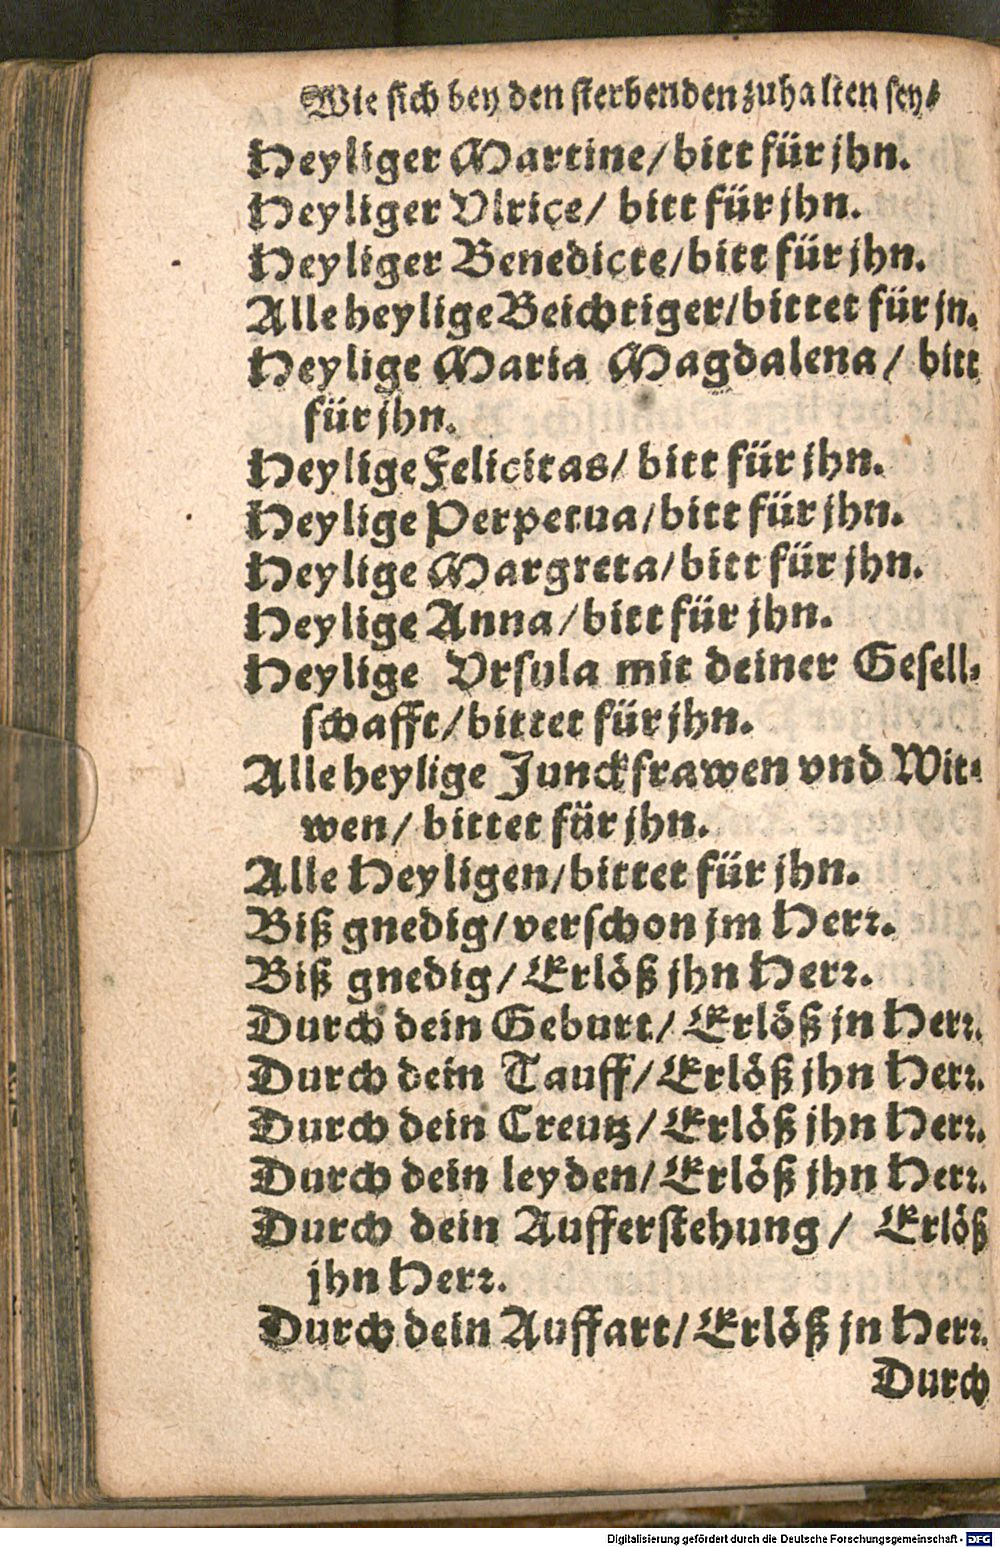 Wie sich bey den sterbenden zuhalten sey⸗
Heyliger Martine/ bitt für jhn.
Heyliger Vlrice/ bitt für jhn.
Heyliger Benedicte/ bitt für jhn.
Alle heylige Beichtiger/ bittet für jn.
Heylige Maria Magdalena/ bitt
für jhn.
Heylige Felicitas/ bitt für jhn.
Heylige Perpetua/ bitt für jhn.
Heylige Margreta/ bitt für jhn.
Heylige Anna/ bitt für jhn.
Heylige Vrsula mit deiner Gesell⸗
schafft/ bittet für jhn.
Alle heylige Junckfrawen vnd Wit⸗
wen/ bittet für jhn.
Alle Heyligen/ bittet für jhn.
Biß gnedig/ verschon jm Herr.
Biß gnedig/ Erlöß jhn Herr.
Durch dein Geburt/ Erlöß jn Herr.
Durch dein Tauff/ Erlöß jhn Herr.
Durch dein Creutz/ Erlöß jhn Herr.
Durch dein leyden/ Erlöß jhn Herr.
Durch dein Aufferstehung/ Erlöß
jhn Herr.
Durch dein Auffart/ Erlöß jn Herr.
Durch
Digitalisierung gefördert durch die Deutsche Forschungsgemeinschaft - DFG